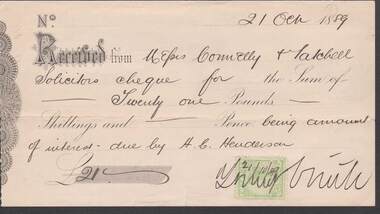 No. 21 Oct 1889
Received from Messrs Connelly & Tatchell
Solicitors cheque for the Sum of
Twenty one Pounds
Shillings and Pence being amount
of interest due by H. C. Henderson
£21